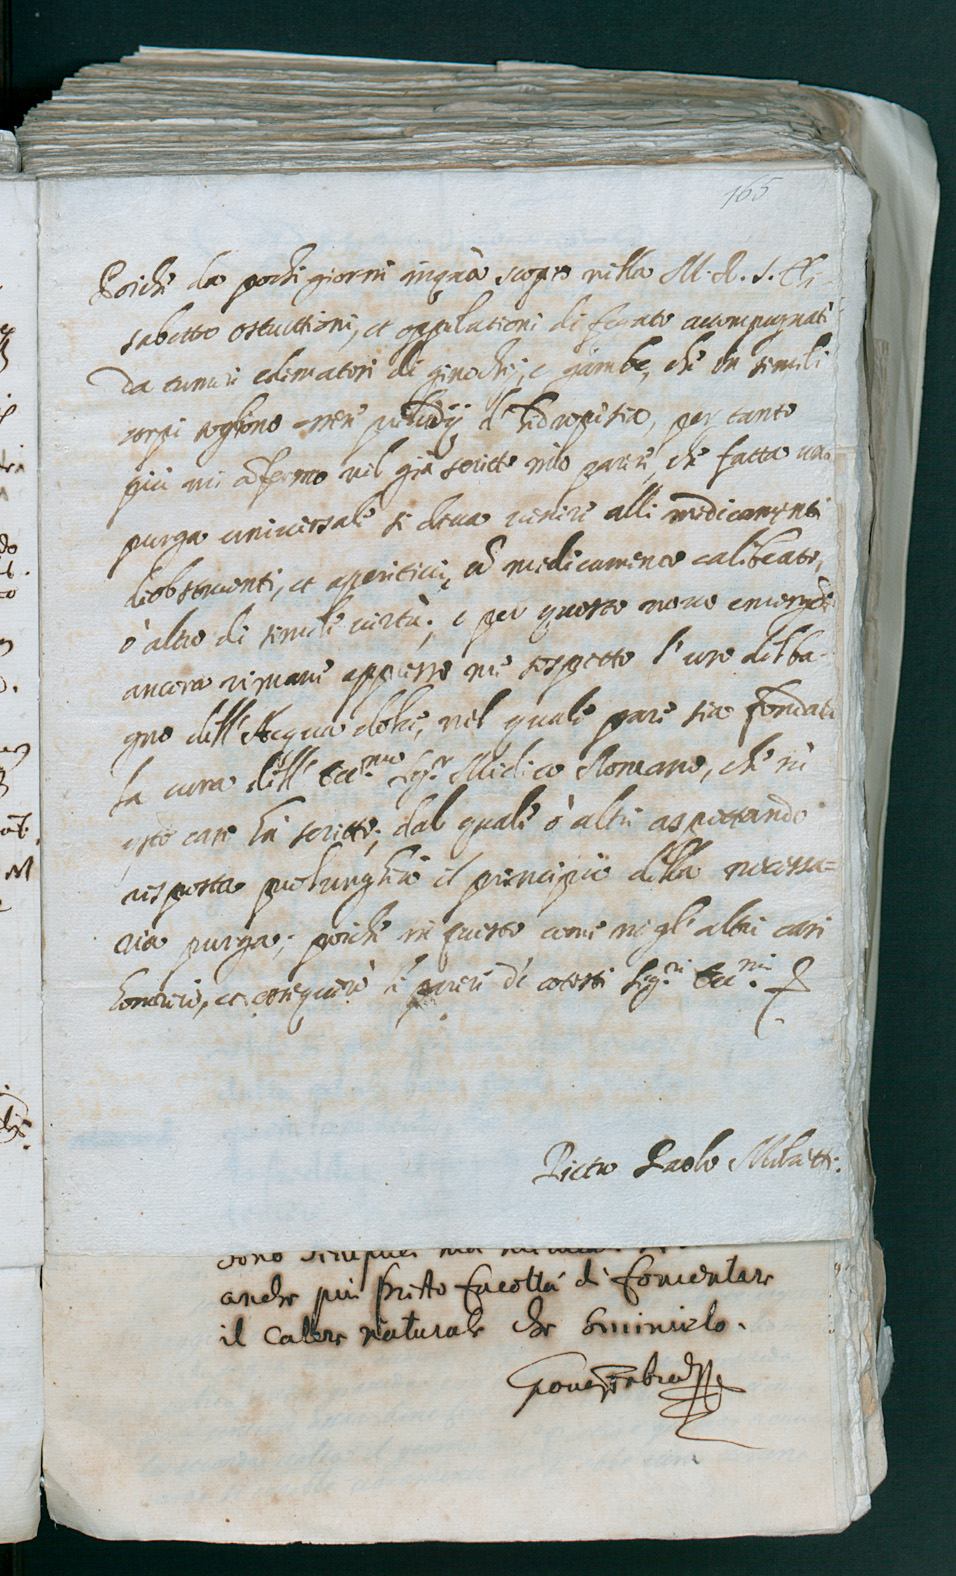 165
Poiche da pochi giorni inquà scopro nella M. R. S. Eli-
sabetta ostruttioni, et oppilationi di fegato accompagnate
da tumori edematosi di ginochi, e gambe, che in simili
corpi sogliono esser preludij d'hidropisia, per tanto
più mi confermo nel già scritto mio parere, che fatta una
purga universale si deva venire alli medicamenti
deobstruenti, et aperitivi, con medicamento calibeato,
ò altro di simile virtù; e per questo novo emergente
ancora rimane appresso me sospetto l'uso del ba-
gno dell'Acqua dolce, nel quale pare sia fondata
la cura dell' Ecc.mo Sig.r Medico Romano, che in
questo caso hà scritto; dal quale ò altri aspettando
risposta prolungherà il principio della necessa=
ria purga; poiche in questo come negl'altri casi
honorerò, et eseguirò li pareri di cotesti Sig.ri Ecc.mi
Pietro Paolo
anche più presto facoltà di fomentare
il calore naturale che sminuirlo.